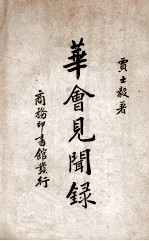 賈士毅著
華會見聞録
商務印書館發行